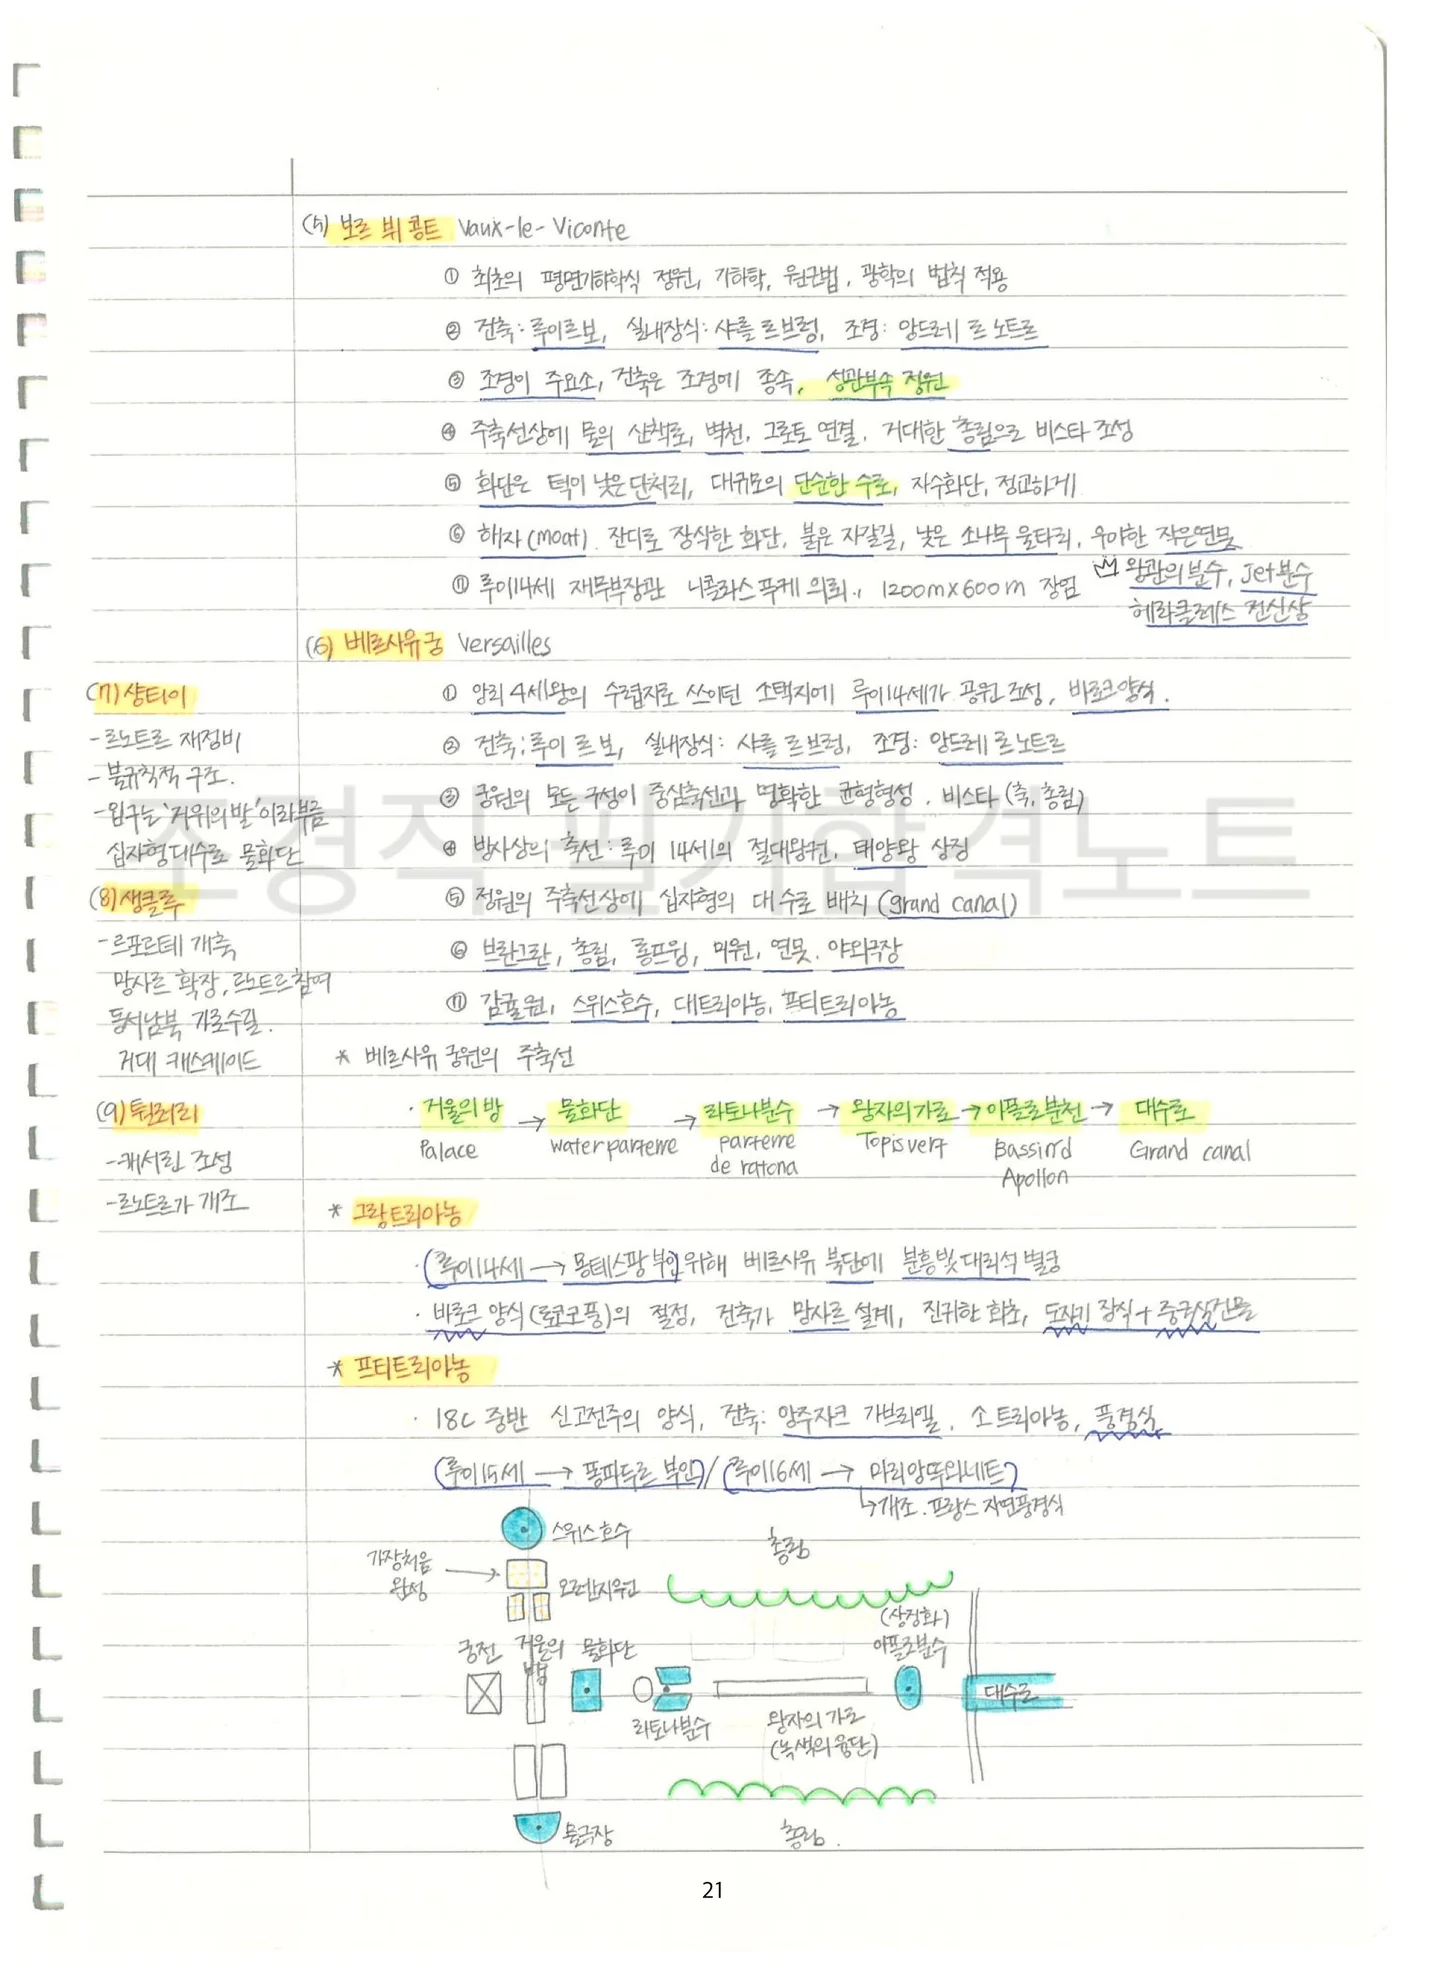 (5) 보르 뷔 콩트 Vaux-le-Viconte
① 최초의 평면기하학식 정원, 기하학, 원근법, 광학의 법칙 적용
② 건축: 루이르보, 실내장식: 샤를 르브렁, 조경: 앙드레 르 노트르
③ 조경이 주요소, 건축은 조경에 종속, 성관부속 정원
④ 주축선상에 물의 산책로, 벽천, 그로토 연결, 거대한 총림으로 비스타 조성
⑤ 화단은 턱이 낮은 단처리, 대규모의 단순한 수로, 자수화단, 정교하게
⑥ 해자(moat). 잔디로 장식한 화단, 붉은 자갈길, 낮은 소나무 울타리, 우아한 작은연못
⑦ 루이14세 재무부장관 니콜라스 푸케 의뢰., 1200m×600m 장엄
왕관의 분수, Jet분수
헤라클레스 전신상
(6) 베르사유궁 Versailles
① 앙리 4세왕의 수렵지로 쓰이던 소택지에 루이14세가 공원 조성, 바로크양식.
② 건축: 루이 르보, 실내장식: 샤를 르브렁, 조경: 앙드레 르노트르
③ 궁원의 모든 구성이 중심축선과 명확한 균형형성. 비스타 (축, 총림)
④ 방사상의 축선: 루이 14세의 절대왕권, 태양왕 상징
⑤ 정원의 주축선상에 십자형의 대수로 배치 (grand canal)
⑥ 브란그란, 총림, 롱프윙, 미원, 연못, 야외극장
⑦ 감귤원, 스위스호수, 대트리아농, 프티트리아농
(7) 샹티이
-르노트르 재정비
-불규칙적 구조.
-입구는 '거위의 발'이라부름
십자형대수로 물화단
(8) 생클루
-르포르테 개축
망사르 확장, 르노트르참여
동서남북 가로수길.
거대 캐스케이드
(9) 튈러리
-캐서린 조성
-르노트르가 개조
* 베르사유 궁원의 주축선
· 거울의 방 → 물화단 → 라토나분수 → 왕자의가로 → 아폴로분천 → 대수로
Palace water parterre parterre de ratona Topis vert Bassin'd Apollon Grand canal
* 그랑트리아농
· (루이14세 → 몽테스팡 부인) 위해 베르사유 북단에 분홍빛 대리석 별궁
· 바로크 양식(로코코풍)의 절정, 건축가 망사르 설계, 진귀한 화초, 도자기 장식 + 중국식건물
* 프티트리아농
· 18C 중반 신고전주의 양식, 건축: 앙주자크 가브리엘, 소 트리아농, 풍경식
(루이15세 → 퐁파두르 부인) / (루이16세 → 마리앙뚜와네트)
↳개조. 프랑스 자연풍경식
스위스호수
가장처음
완성
오렌지원
총림
(상징화)
아폴로분수
궁전 거울의 방 물화단
대수로
라토나분수
왕자의 가로
(녹색의 융단)
물극장
총림.
조경직 필기합격노트
21